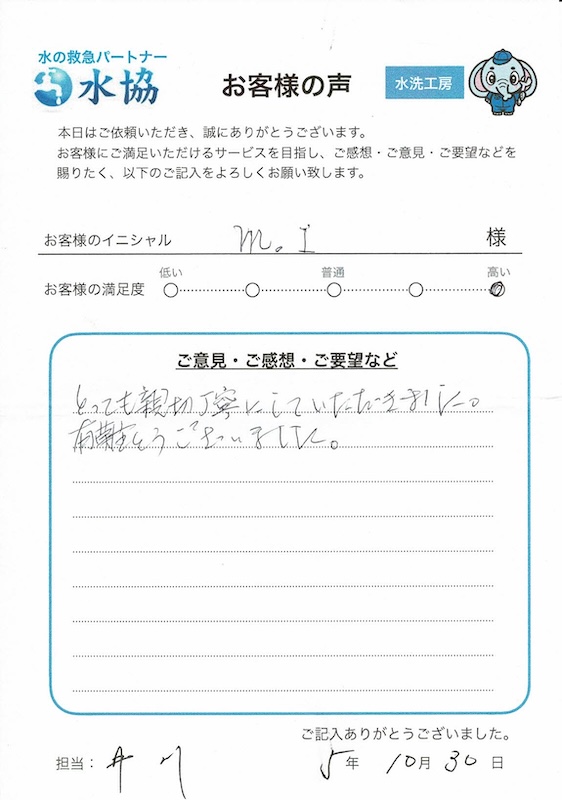 水の救急パートナー
水協
お客様の声
水洗工房
本日はご依頼いただき、誠にありがとうございます。
お客様にご満足いただけるサービスを目指し、ご感想・ご意見・ご要望などを
賜りたく、以下のご記入をよろしくお願い致します。
お客様のイニシャル M.I 様
低い 普通 高い
お客様の満足度
ご意見・ご感想・ご要望など
とっても親切丁寧にしていただきました。
有難とうございました。
ご記入ありがとうございました。
担当：井川 5年 10月 30日